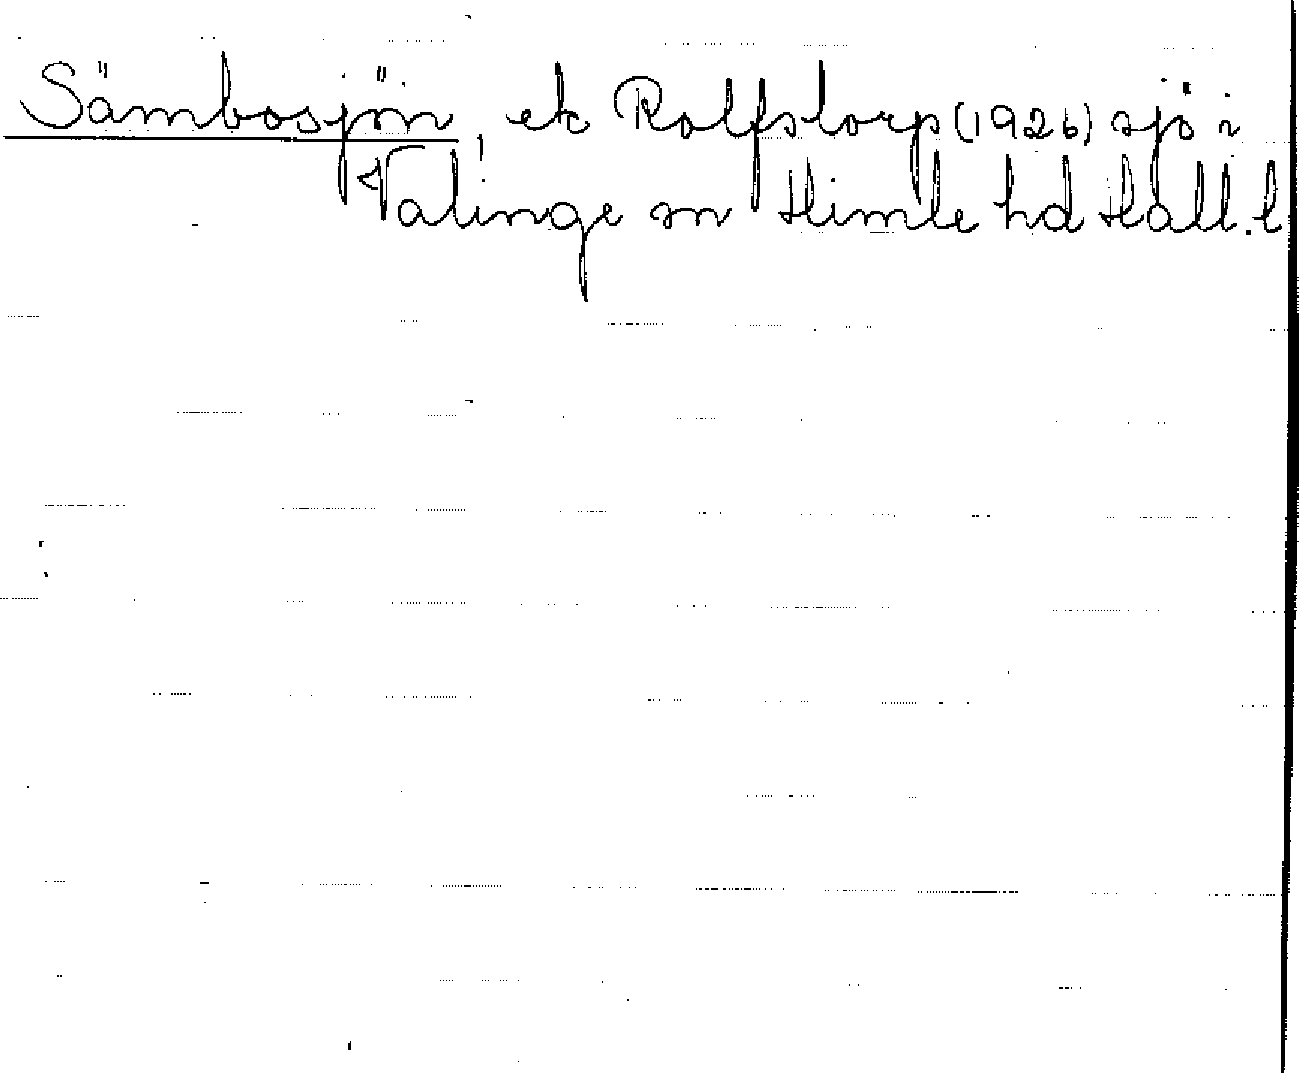 Sämbosjön, ek Rolfstorp (1926) sjö i
Valinge sn Himle hd Hall. l